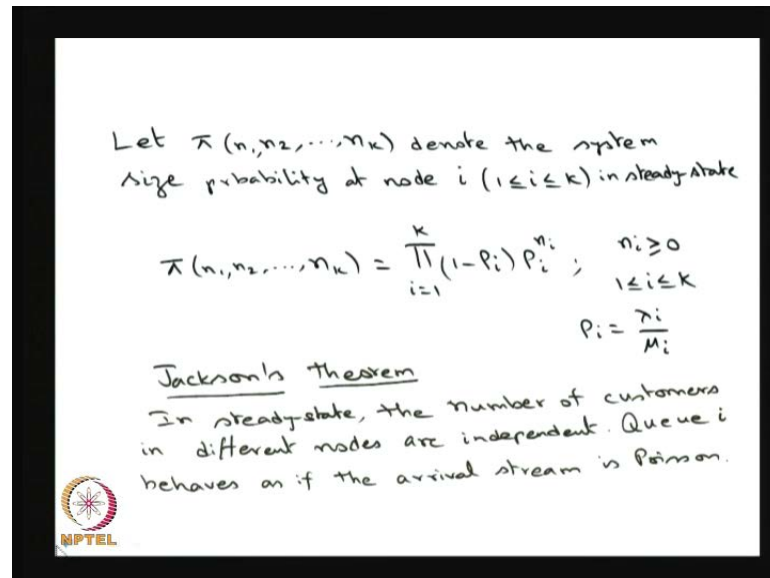 Let π(n₁,n₂,...,nₖ) denote the system
size probability at node i (1≤i≤k) in steady-state
π(n₁,n₂,...,nₖ) = ∏ᵢ₌₁ᵏ (1-ρᵢ) ρᵢⁿⁱ ; nᵢ≥0
1≤i≤k
ρᵢ = λᵢ/μᵢ
Jackson's Theorem
In steady-state, the number of customers
in different nodes are independent. Queue i
behaves as if the arrival stream is Poisson.
NPTEL